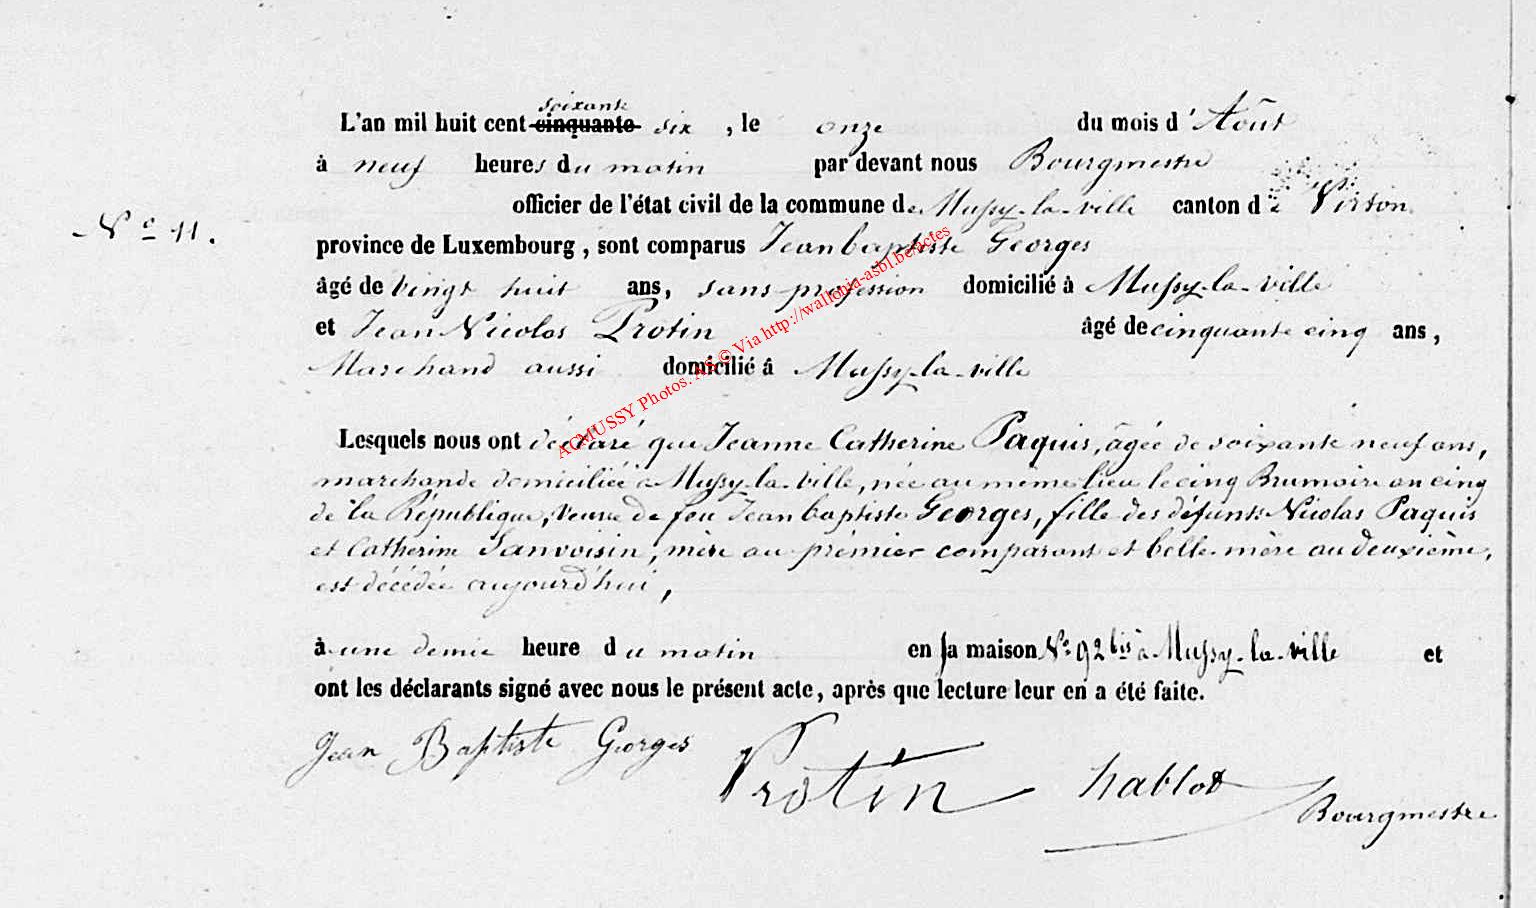 soixante
L'an mil huit cent cinquante six , le onze du mois d'Août
à neuf heures du matin par devant nous Bourgmestre
officier de l'état civil de la commune de Mussy-la-ville canton de Virton
N° 11.
province de Luxembourg, sont comparus Jean baptiste Georges
âgé de vingt huit ans, sans profession domicilié à Mussy-la-ville
et Jean Nicolas Protin âgé de cinquante cinq ans,
Marchand aussi domicilié à Mussy-la-ville
Lesquels nous ont déclaré que Jeanne Catherine Paquis, âgée de soixante neuf ans,
marchande domiciliée à Mussy-la-ville, née au même lieu le cinq Brumaire an cinq
de la République, Veuve de feu Jean baptiste Georges, fille des défunts Nicolas Paquis
et Catherine Sanvoisin, mère au prémier comparant et belle-mère au deuxième,
est décédée aujourd'hui,
à une demie heure du matin en sa maison N° 92 bis à Mussy-la-ville et
ont les déclarants signé avec nous le présent acte, après que lecture leur en a été faite.
Jean Baptiste Georges
Protin hablot
Bourgmestre
ACMUSSY Photos. AS © Via http://wallonia-asbl.be/actes